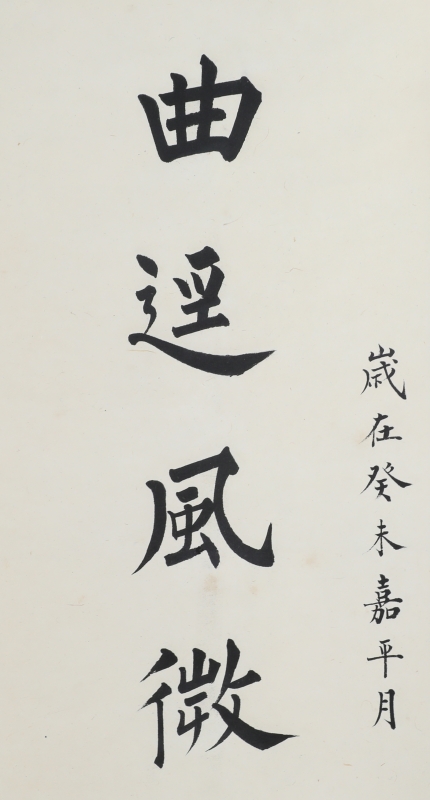 歲在癸未嘉平月
曲逕風微